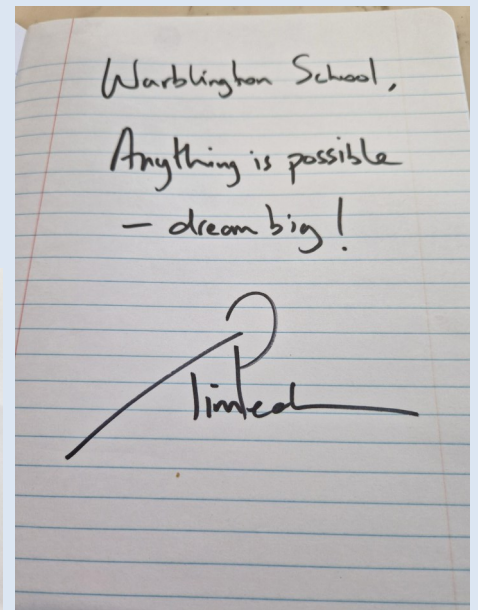 Warblington School,
Anything is possible
— dream big!